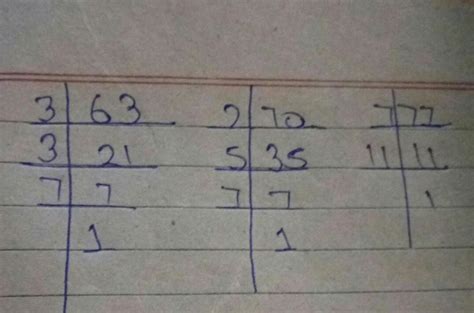 3 | 63 2 | 70 7 | 77
3 | 21 5 | 35 11 | 11
7 | 7 7 | 7 1
1 1